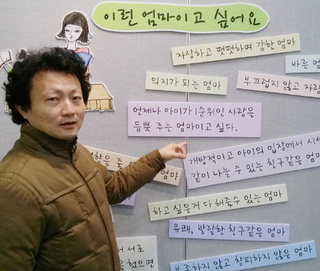 이런 엄마이고 싶어요
자상하고 푯푯하며 강한 엄마
바른
의지가 되는 엄마
부끄럽지 않고
언제나 아이가 1순위인 사랑은
듬뿍 주는 엄마이고 싶다.
개방적이고 아이의 입장에서
같이 나눌 수 있는 친구같은 엄마
하고 싶은거 다 해줄수 있는 엄마
유쾌, 발랄한 친구같은 엄마
부족하지 않고 창피하지 않은 엄마
서로
했으면